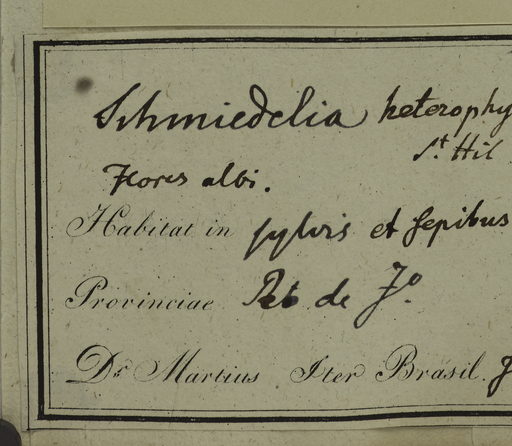 Schmiedelia heterophy
St. Hil
Flores albi.
Habitat in sylvis et sepibus
Provinciae de J°.
Dr. Martius Iter Brasil.